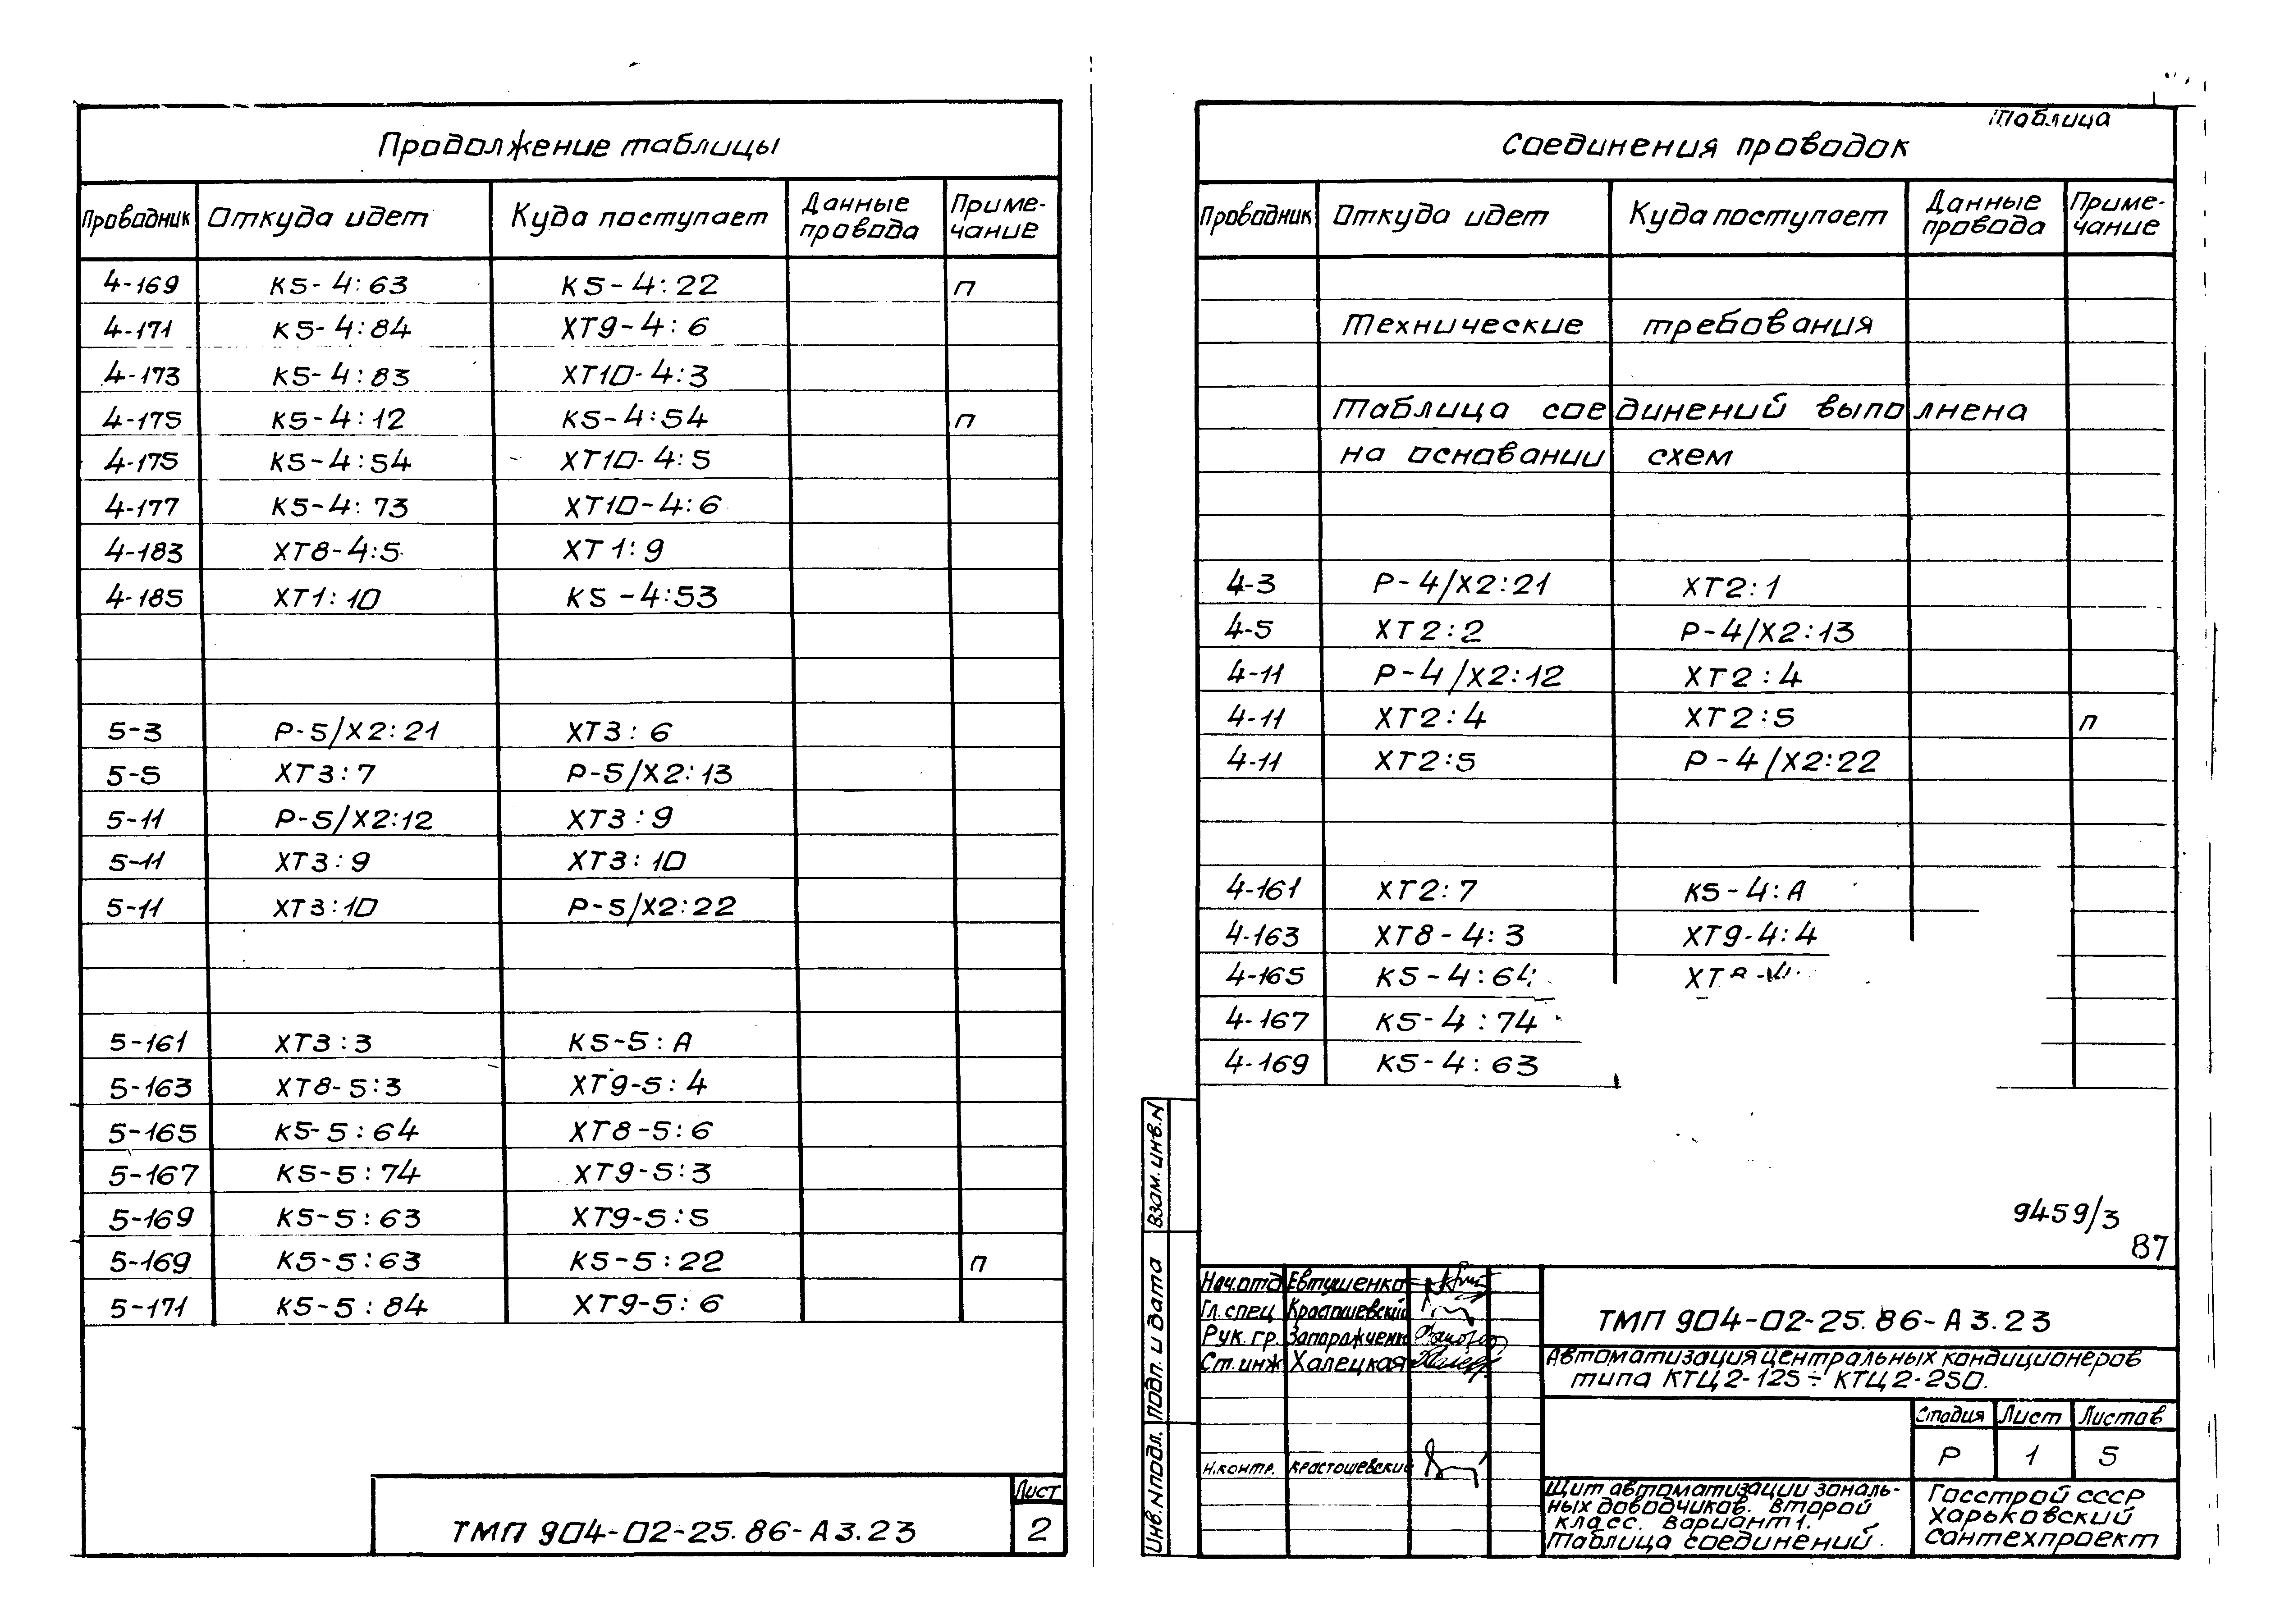 Продолжение таблицы
Проводник Откуда идет Куда поступает Данные провода Приме-чание
4-169 К5-4:63 К5-4:22 п
4-171 К5-4:84 ХТ9-4:6
4-173 К5-4:83 ХТ10-4:3
4-175 К5-4:12 К5-4:54 п
4-175 К5-4:54 ХТ10-4:5
4-177 К5-4:73 ХТ10-4:6
4-183 ХТ8-4:5 ХТ1:9
4-185 ХТ1:10 К5-4:53
5-3 Р-5/Х2:21 ХТ3:6
5-5 ХТ3:7 Р-5/Х2:13
5-11 Р-5/Х2:12 ХТ3:9
5-11 ХТ3:9 ХТ3:10
5-11 ХТ3:10 Р-5/Х2:22
5-161 ХТ3:3 К5-5:А
5-163 ХТ8-5:3 ХТ9-5:4
5-165 К5-5:64 ХТ8-5:6
5-167 К5-5:74 ХТ9-5:3
5-169 К5-5:63 ХТ9-5:5
5-169 К5-5:63 К5-5:22 п
5-171 К5-5:84 ХТ9-5:6
ТМП 904-02-25.86-А3.23
Лист
2
Таблица
Соединения проводок
Проводник Откуда идет Куда поступает Данные провода Приме-чание
Технические требования
Таблица соединений выполнена
на основании схем
4-3 Р-4/Х2:21 ХТ2:1
4-5 ХТ2:2 Р-4/Х2:13
4-11 Р-4/Х2:12 ХТ2:4
4-11 ХТ2:4 ХТ2:5 п
4-11 ХТ2:5 Р-4/Х2:22
4-161 ХТ2:7 К5-4:А
4-163 ХТ8-4:3 ХТ9-4:4
4-165 К5-4:64
4-167 К5-4:74
4-169 К5-4:63
9459/3
87
Взам. инв.N
Подп. и дата
Инв.Nподл.
Нач.отд Евтушенко
Гл.спец Красташевский
Рук.гр. Запорожченко
Ст.инж Халецкая
Н.контр. Красташевский
ТМП 904-02-25.86-А3.23
Автоматизация центральных кондиционеров
типа КТЦ2-125÷КТЦ2-250.
Стадия Лист Листов
Р 1 5
Щит автоматизации зональ-
ных доводчиков. Второй
класс. Вариант 1.
Таблица соединений.
Госстрой СССР
Харьковский
Сантехпроект